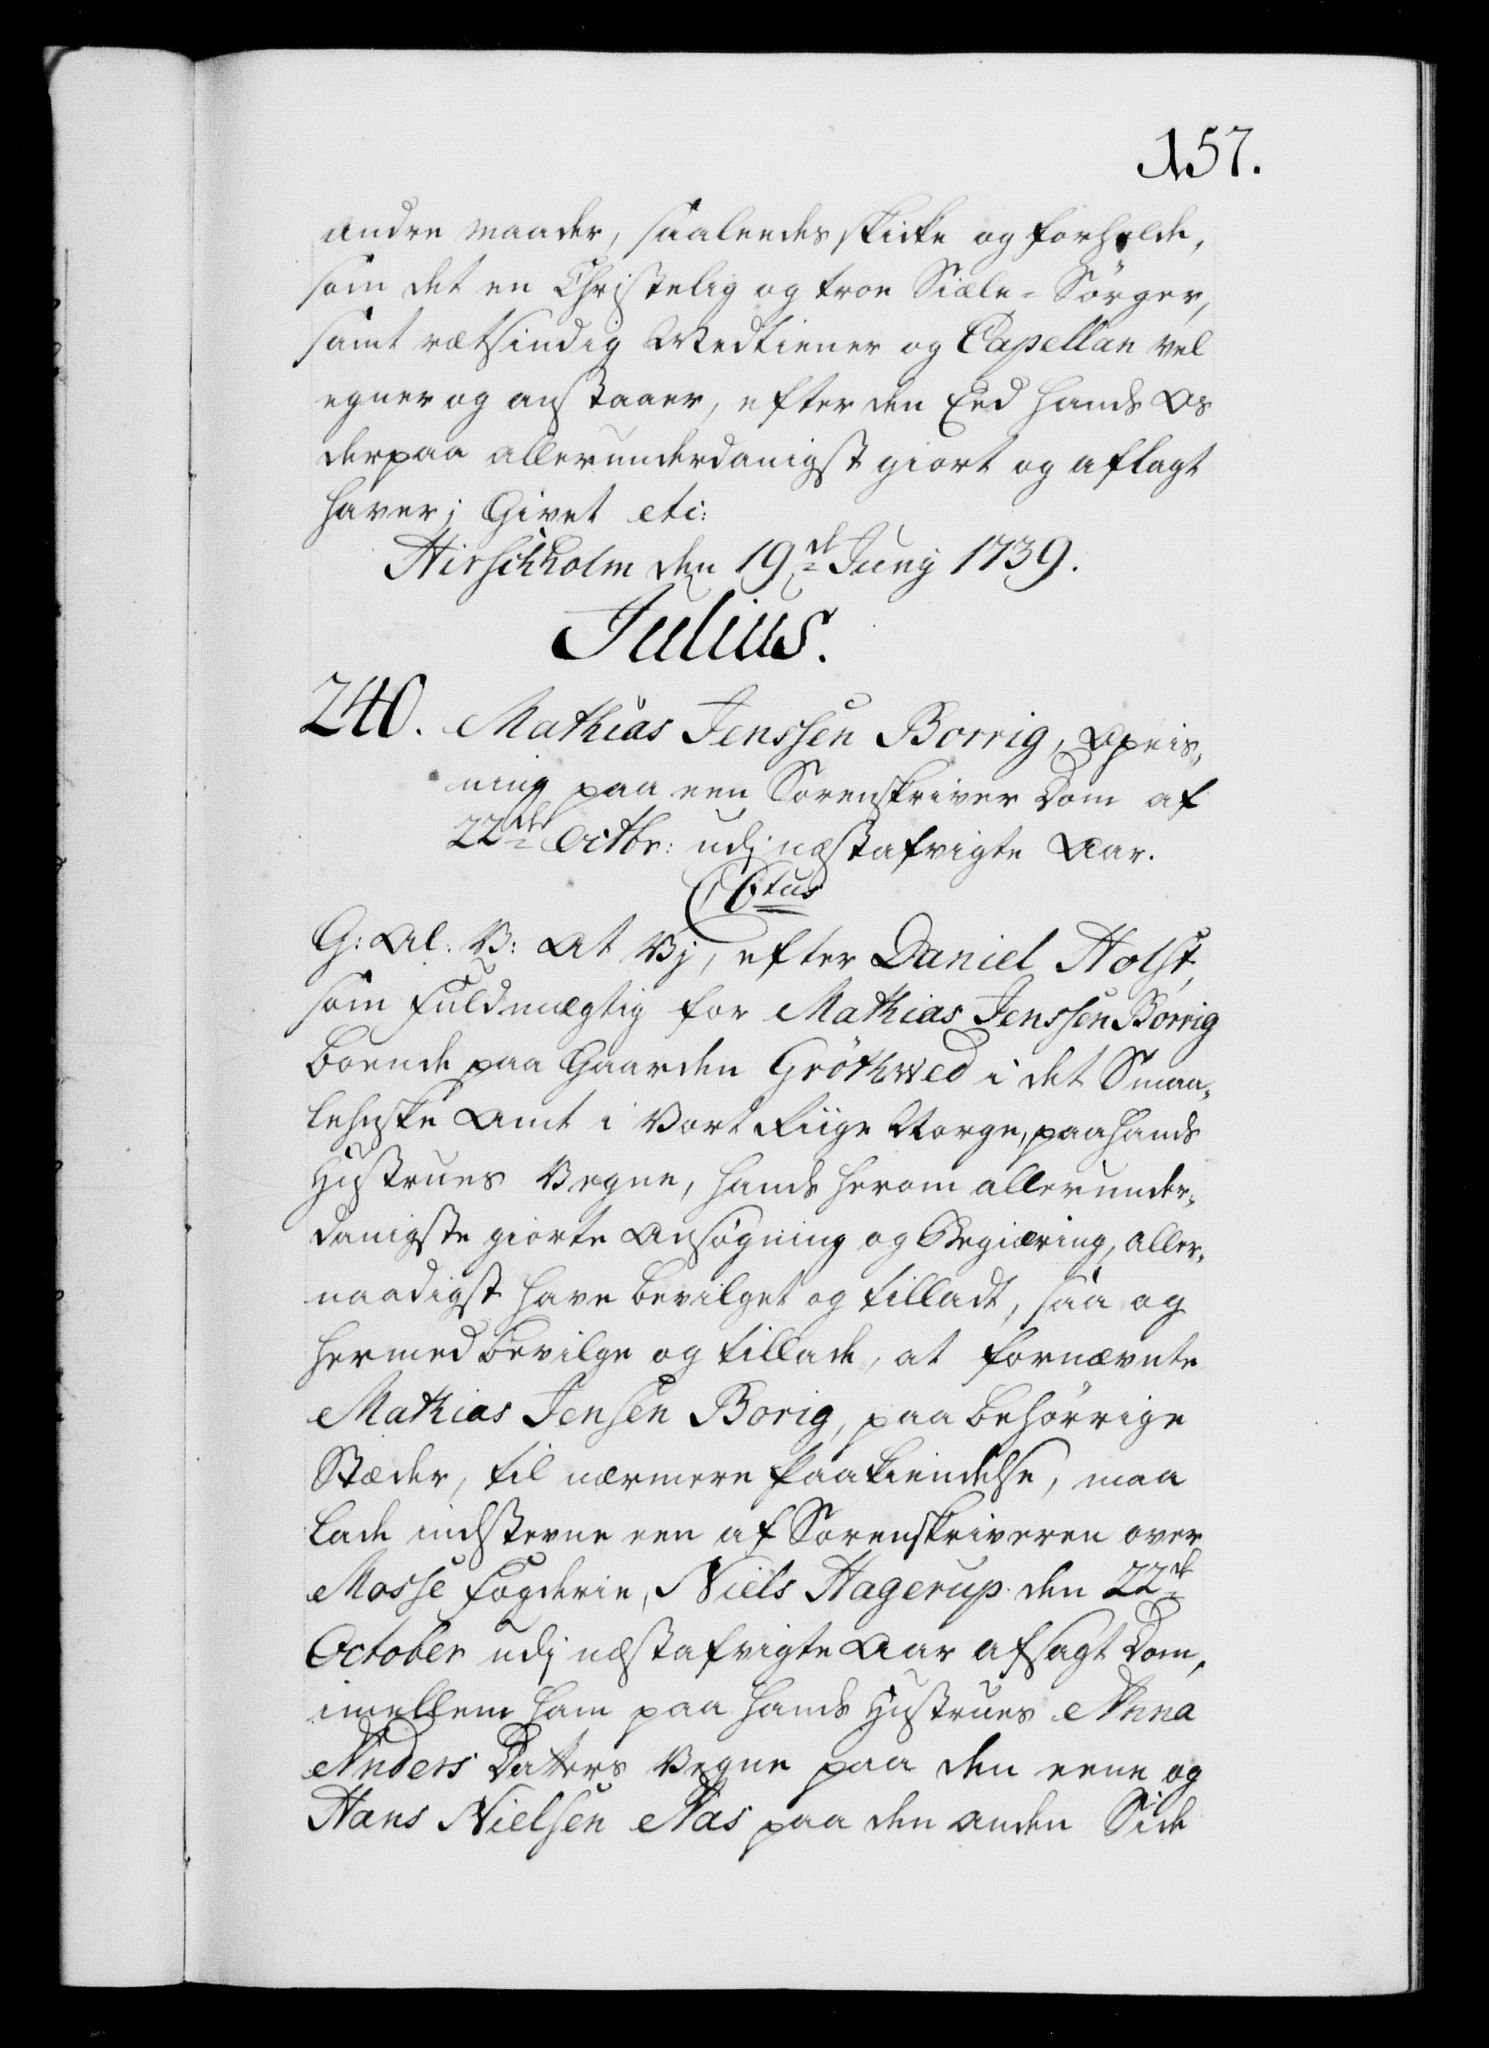 157.
andre maader, saaleedes skicke og forholde,
som det en Christelig og troe Siæle-Sörger,
samt rætsindig Medtiener og Capellan vel
egner og anstaaer, efter den Eed hands Os
derpaa allerunderdanigst giort og aflagt
haver; Givet etc:
Hirschholm den 19de Juny 1739.
Julius.
240. Mathias Jenssen Borrig, Opreis-
ning paa een Sorenskriver Dom af
22de Octbr: udj næstafvigte Aar.
C 6tus
G: Al: V: At Vj, efter Daniel Holst,
som Fuldmægtig for Mathias Jenssen Borrig
boende paa Gaarden Gröthved i det Smaa-
lehnske Amt i Vort Riige Norge, paa hands
Hustrues Vegne, hands herom allerunder-
danigste giorte Ansøgning og Begiæring, aller-
naadigst have bevilget og tilladt, saa og
hermed bevilge og tillade, at fornævnte
Mathias Jensen Borig, paa behörrige
Stæder, til nærmere Paakiendelse, maa
lade indstevne een af Sorenskriveren over
Mosse Fogderie, Niels Hagerup den 22de
October udj næstafvigte Aar afsagt Dom,
imellem ham paa hands Hustrues Anna
Anders Datters Vegne paa den eene og
Hans Nielsen Næs paa den anden Side